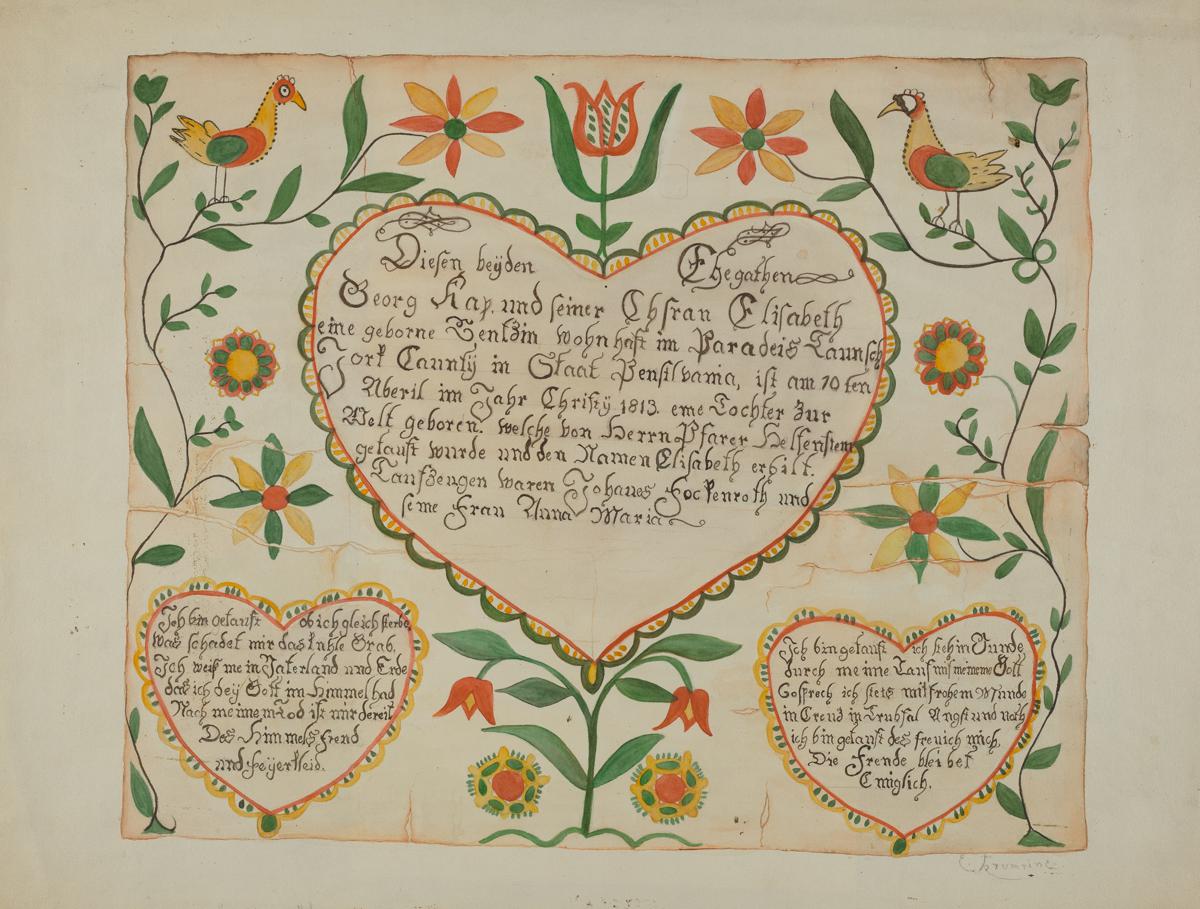 Diesen beyden Ehegathen
Georg Kap. und seiner Ehsran Elisabeth
eine geborne wohnhaft im Paradeis Taunsch
Jork Caunty in Staat Pensilvania, ist am 10 ten
Aberil im Jahr Christy 1813. eine Tochter zur
Welt geboren. welche von Herrn Pfarer Helfenstein
getauft wurde und den Namen Elisabeth erhilt.
Taufzeugen waren Johanes Fockenroth und
seine Frau Anna Maria
Ich bin getauft ob ich gleich sterbe
was schadet mir das kuhle Grab.
Ich weis mein Vaterland und Erbe
das ich bey Gott im Himmel hab
Nach meinem Tod ist mir bereit
Des Himmels Freud
und Feyerkleid.
Ich bin getauft ich steh in Bunde
durch meine Tauf mit meinem Gott
So sprech ich stets mit frohem Munde
in Creuz in Trubsal Angst und noth
ich bin getauft des freu ich mich,
Die Freude bleibet
Ewiglich.
E. Krumrine